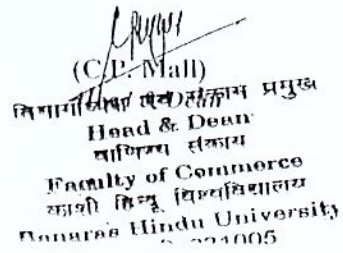 (C.P. Mall)
एवं संकाय प्रमुख
Head & Dean
वाणिज्य संकाय
Faculty of Commerce
काशी हिन्दू विश्वविद्यालय
Banaras Hindu University
221005